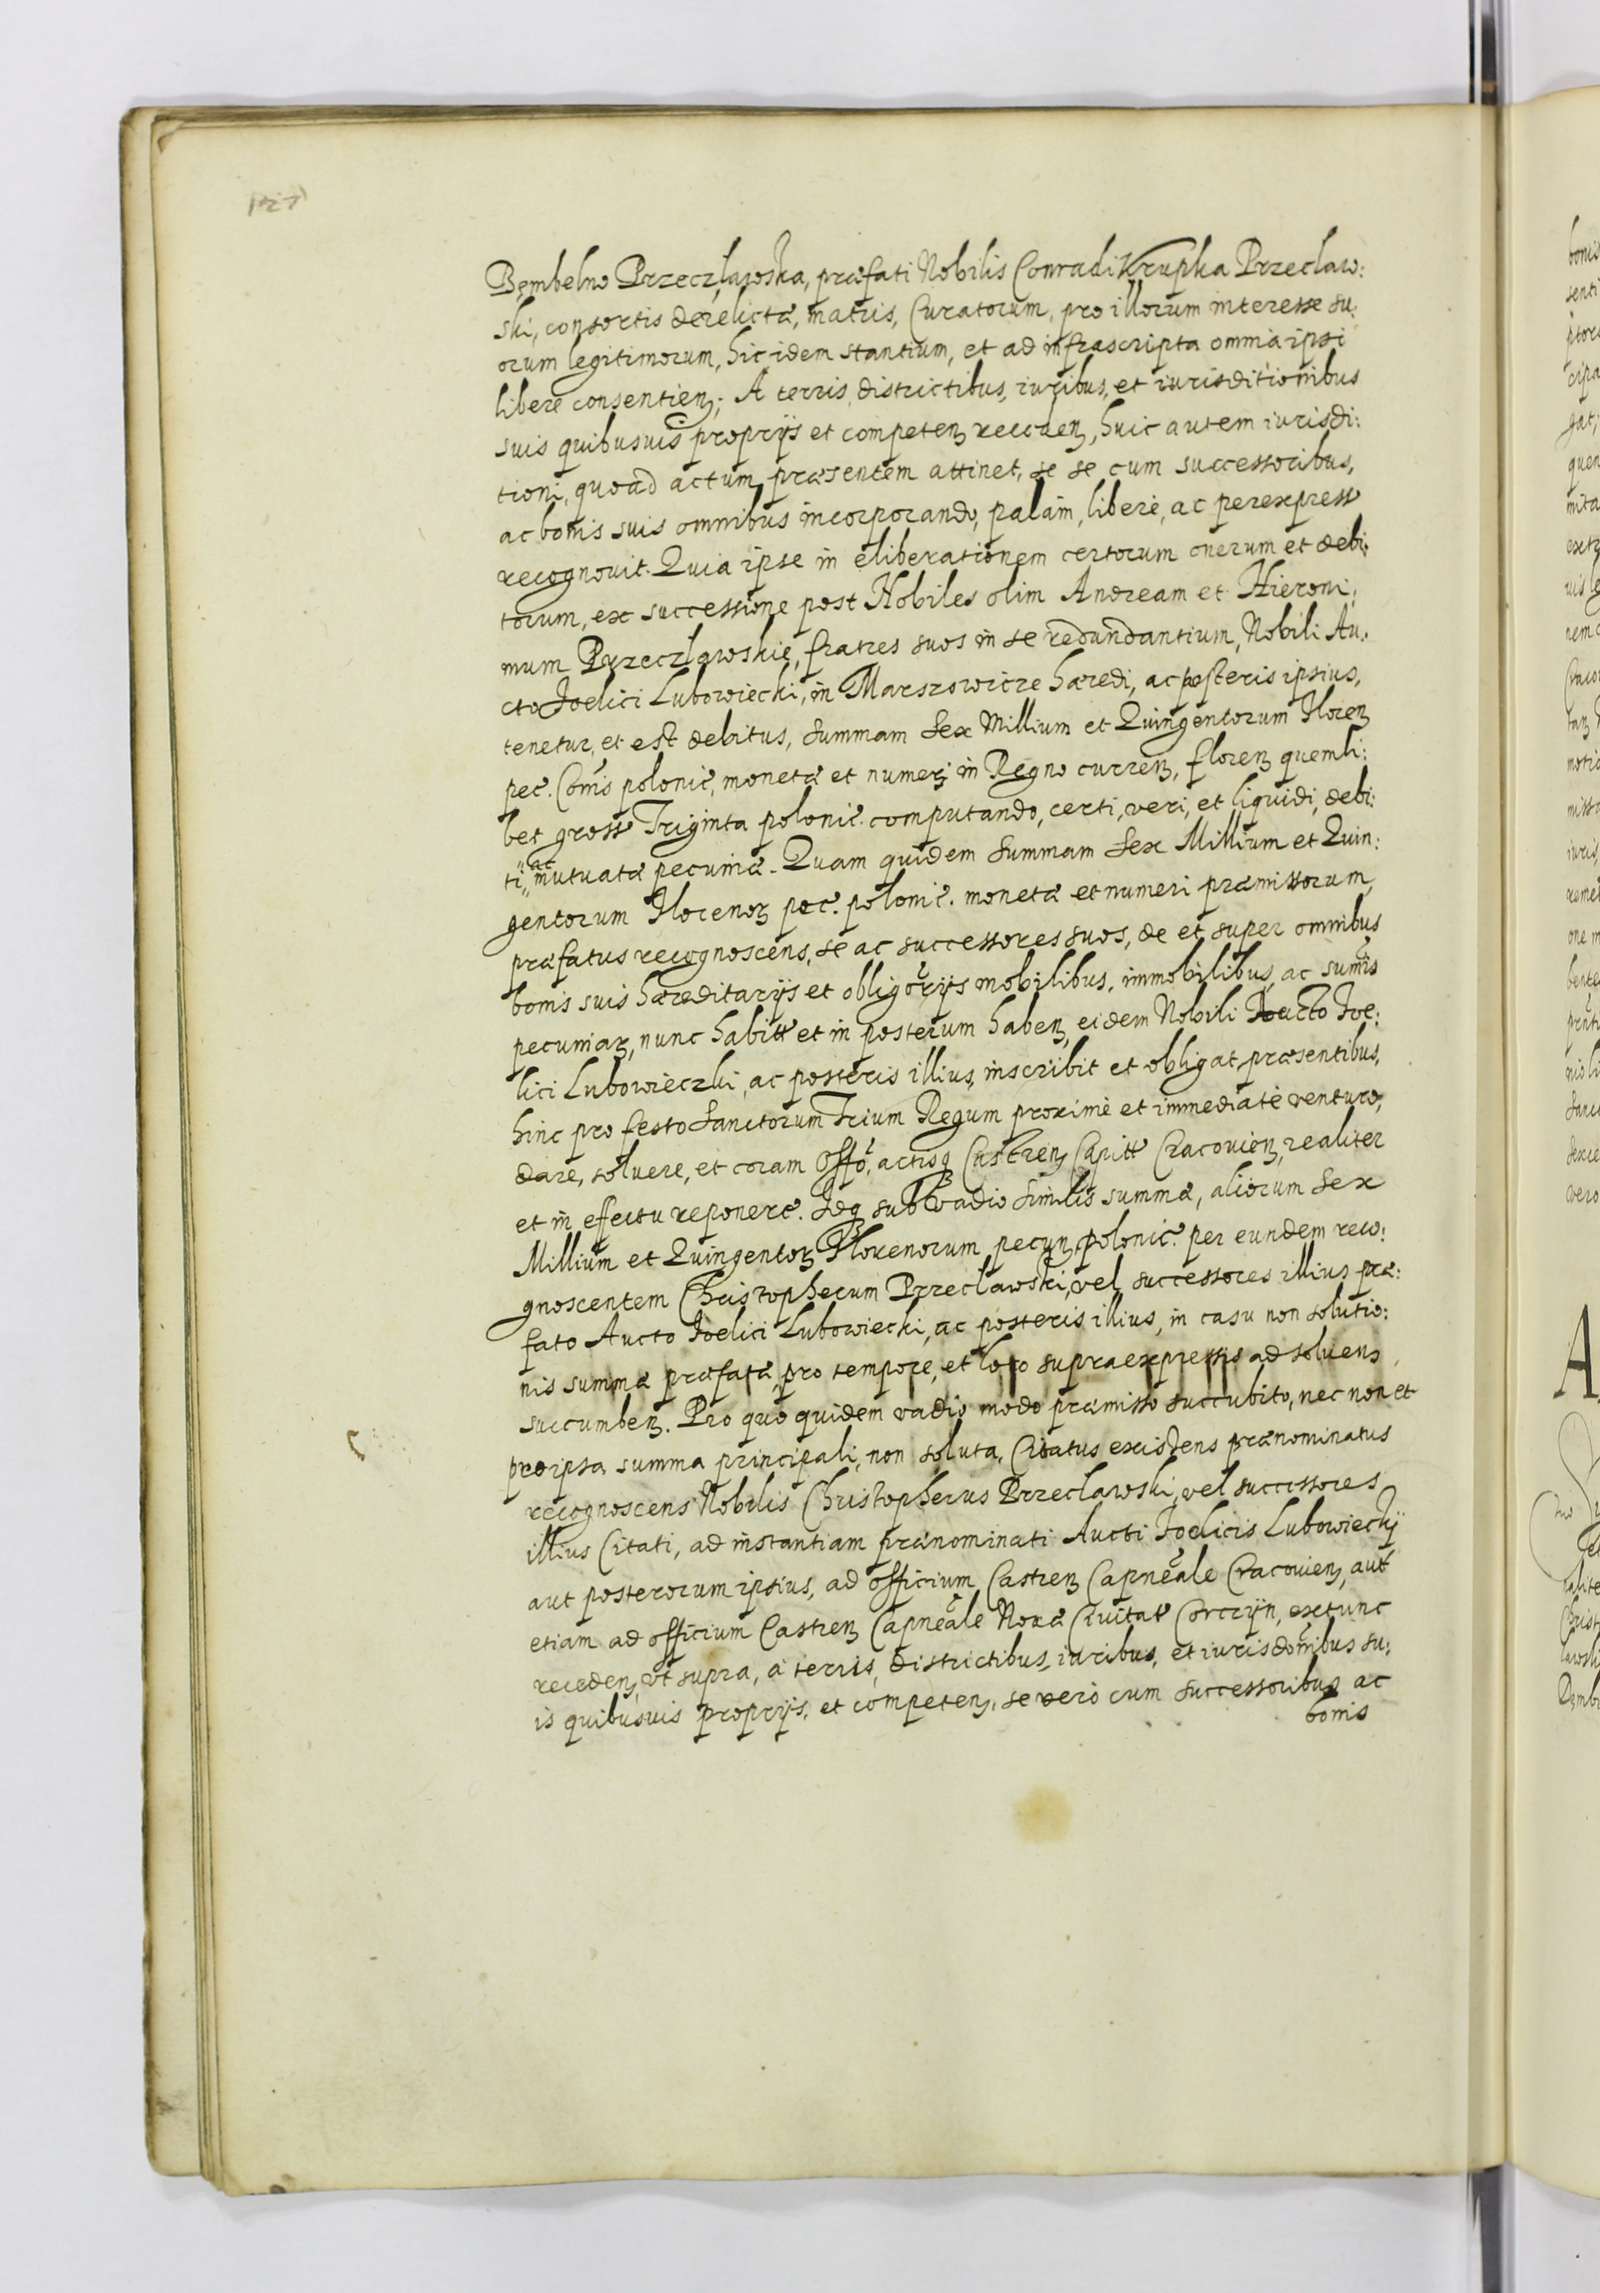 Bembelno Przeczlawska, præfati Nobilis Conradi Krupka Przeclaw:
ski, consortis derelictæ, matris, Curatorum, pro illorum interesse su:
orum legitimorum, hic idem stantium, et ad infrascripta omnia ipsi
libere consentien; A terris, districtibus, iuribus, et iurisditionibus
suis quibusuis proprijs et competen receden, huic autem iurisdi:
tioni, quoad actum præsentem attinet, se se cum successoribus,
ac bonis suis omnibus incorporando, palam, libere, ac perexpress
recognouit. Quia ipse in eliberationem certorum onerum et debi:
torum, ex successione post Nobiles olim Andream et Hieroni:
mum Przeczlawskie, fratres suos in se redundantium, Nobili Au:
cto Joelici Lubowiecki, in Marszowicze hæredi, ac posteris ipsius,
tenetur, et est debitus, summam Sex Millium et Quingentorum Floren
pec. Coîs polonic, monetæ et numeri in Regno curren, floren quemli:
bet gross Triginta polonic. computando, certi, veri, et liquidi, debi:
ti, ac mutuatæ pecuniæ. Quam quidem summam Sex Millium et Quin:
gentorum Florenor pec. polonic. monetæ et numeri præmissorum,
præfatus recognoscens, se ac successores suos, de et super omnibus
bonis suis hæreditarijs et obligorijs mobilibus, immobilibus, ac sumis
pecuniar, nunc habitt et in posterum haben, eidem Nobili Aucto Joe:
lici Lubowieczki, ac posteris illius, inscribit et obligat, præsentibus,
hinc pro festo Sanctorum Trium Regum proxime et immediate venturo,
dare, soluere, et coram Offo, actisq Castren Capitt Cracouien, realiter
et in effectu reponere. Idq sub vadio similis summæ, aliorum Sex
Millium et Quingentor Florenorum pecun polonic. per eundem reco:
gnoscentem Christopherum Przeclawski, vel successores illius præ:
fato Aucto Joelici Lubowiecki, ac posteris illius, in casu non solutio:
nis summæ præfatæ, pro tempore, et loco supraexpressis ad soluen
succumben. Pro quo quidem vadio modo præmisso succubito, nec non et
pro ipsa summa principali, non soluta, Citatus existens prænominatus
recognoscens Nobilis Christopherus Przeclawski, vel successores
illius Citati, ad instantiam prænominati Aucti Joelicis Lubowieckij
aut posterorum ipsius, ad officium Castren Capneale Cracouien, aut
etiam ad officium Castren Capneale Nouæ Ciuitat Corczyn, extunc
receden, vt supra, a terris, districtibus, iuribus, et iurisdonibus su:
is quibusuis proprijs, et competen, se vero cum successoribus ac
bonis